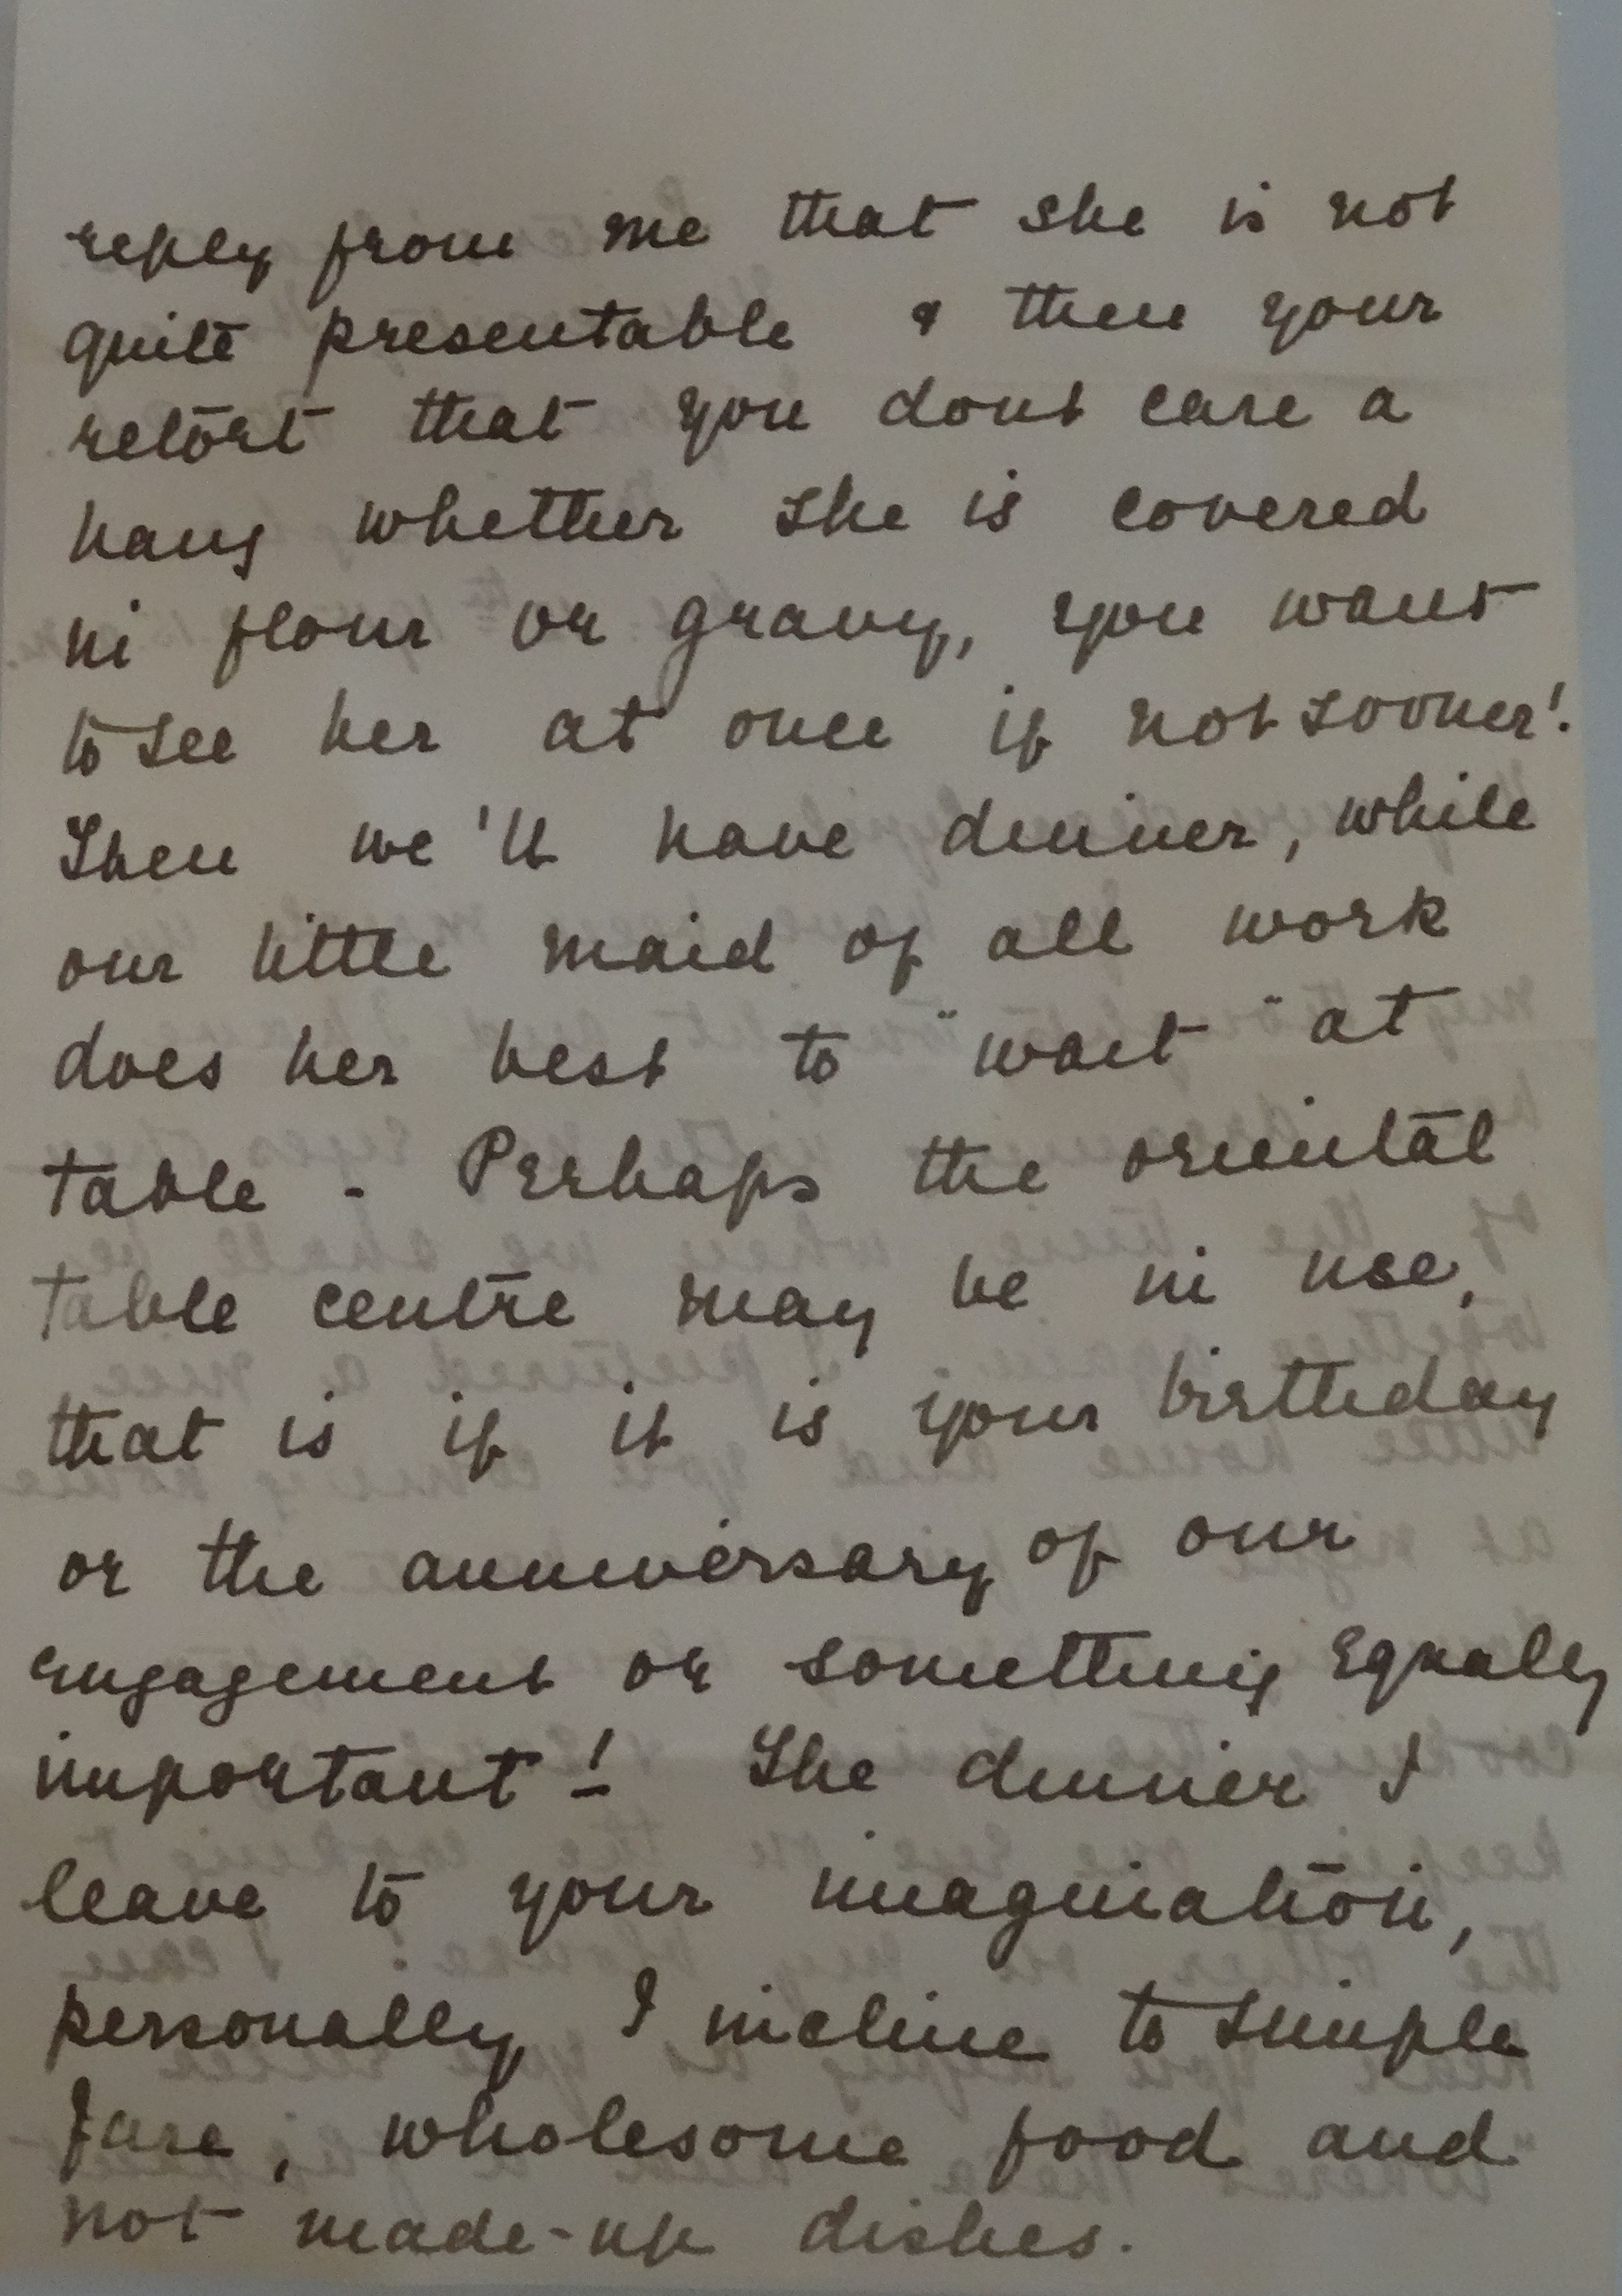 reply from me that she is not
quite presentable & then your
retort that you dont care a
hang whether she is covered
in flour or gravy, you want
to see her at once if not sooner!.
Then we'll have dinner, while
our little maid of all work
does her best to "wait" at
table - Perhaps the oriental
table centre may be in use,
that is if it is your birthday
or the anniversary of our
engagement or something equally
important! The dinner I
leave to your imagination,
personally I incline to simple
fare, wholesome food and
not made-up dishes.